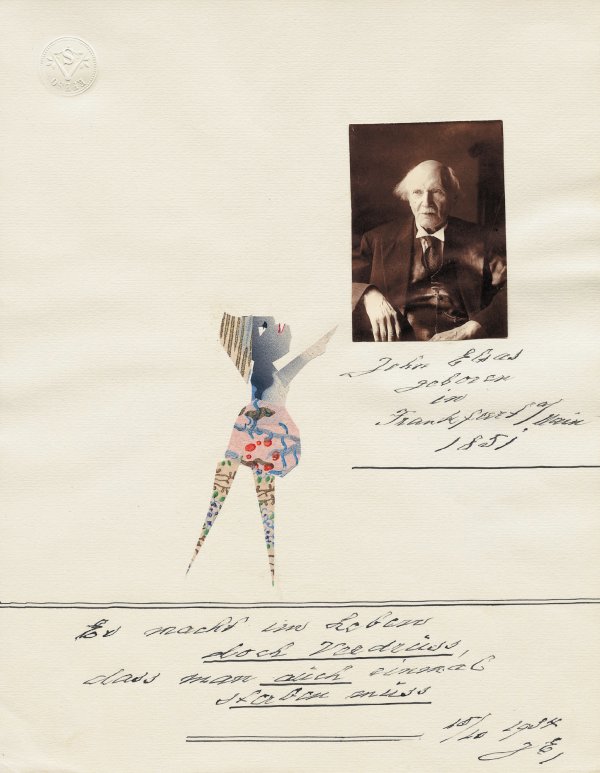 John Elsas
geboren
in
Frankfurt a/Main
1851
Es macht im Leben
doch Verdruss,
dass man auch einmal
sterben muss
15/10 1934
J E